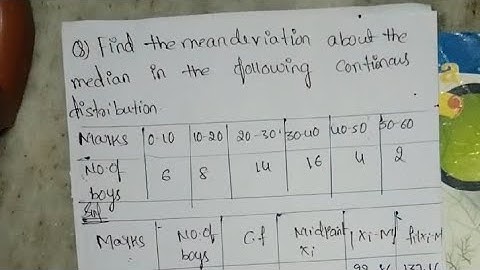 Q) Find the mean deviation about the
median in the following continous
distribution.
Marks 0-10 10-20 20-30 30-40 40-50 50-60
No. of boys 6 8 14 16 4 2
Sol
Marks No. of boys C.f Midpoint xi |xi-M| fi|xi-M|